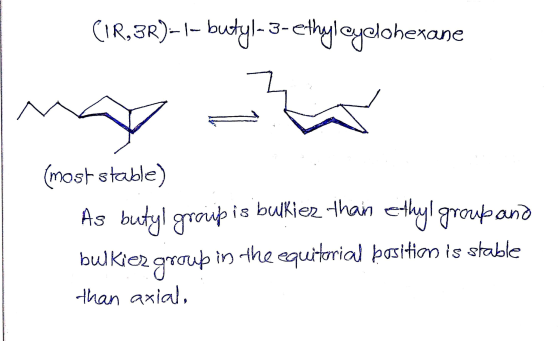 (1R,3R)-1-butyl-3-ethylcyclohexane
(most stable)
As butyl group is bulkier than ethyl group and
bulkier group in the equitorial position is stable
than axial.